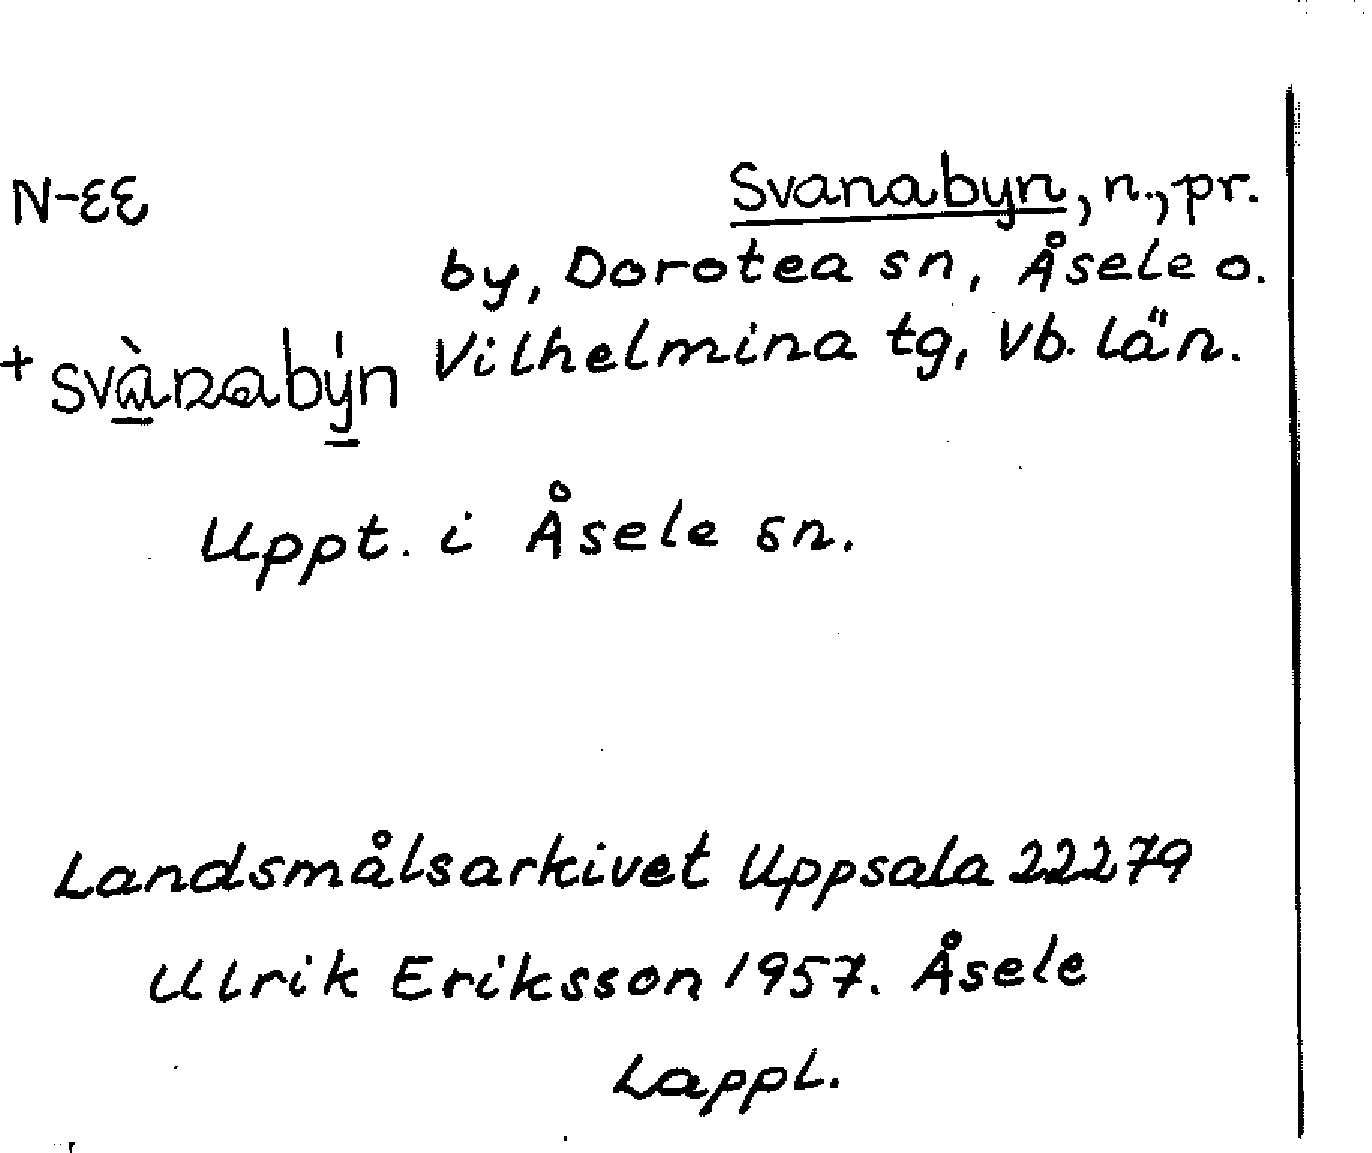 N-ƐƐ Svanabyn, n., pr.
by, Dorotea sn, Åsele o.
+ svànabýn Vilhelmina tg, Vb. län.
Uppt. i Åsele sn.
Landsmålsarkivet Uppsala 22279
Ulrik Eriksson 1957. Åsele
Lappl.